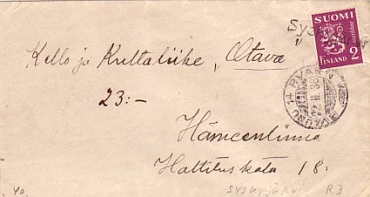 SUOMI
FINLAND 2
Kello ja Kultaliike, "Otava"
23:-
Hämeenlinna
Hallituskatu 18.
R3